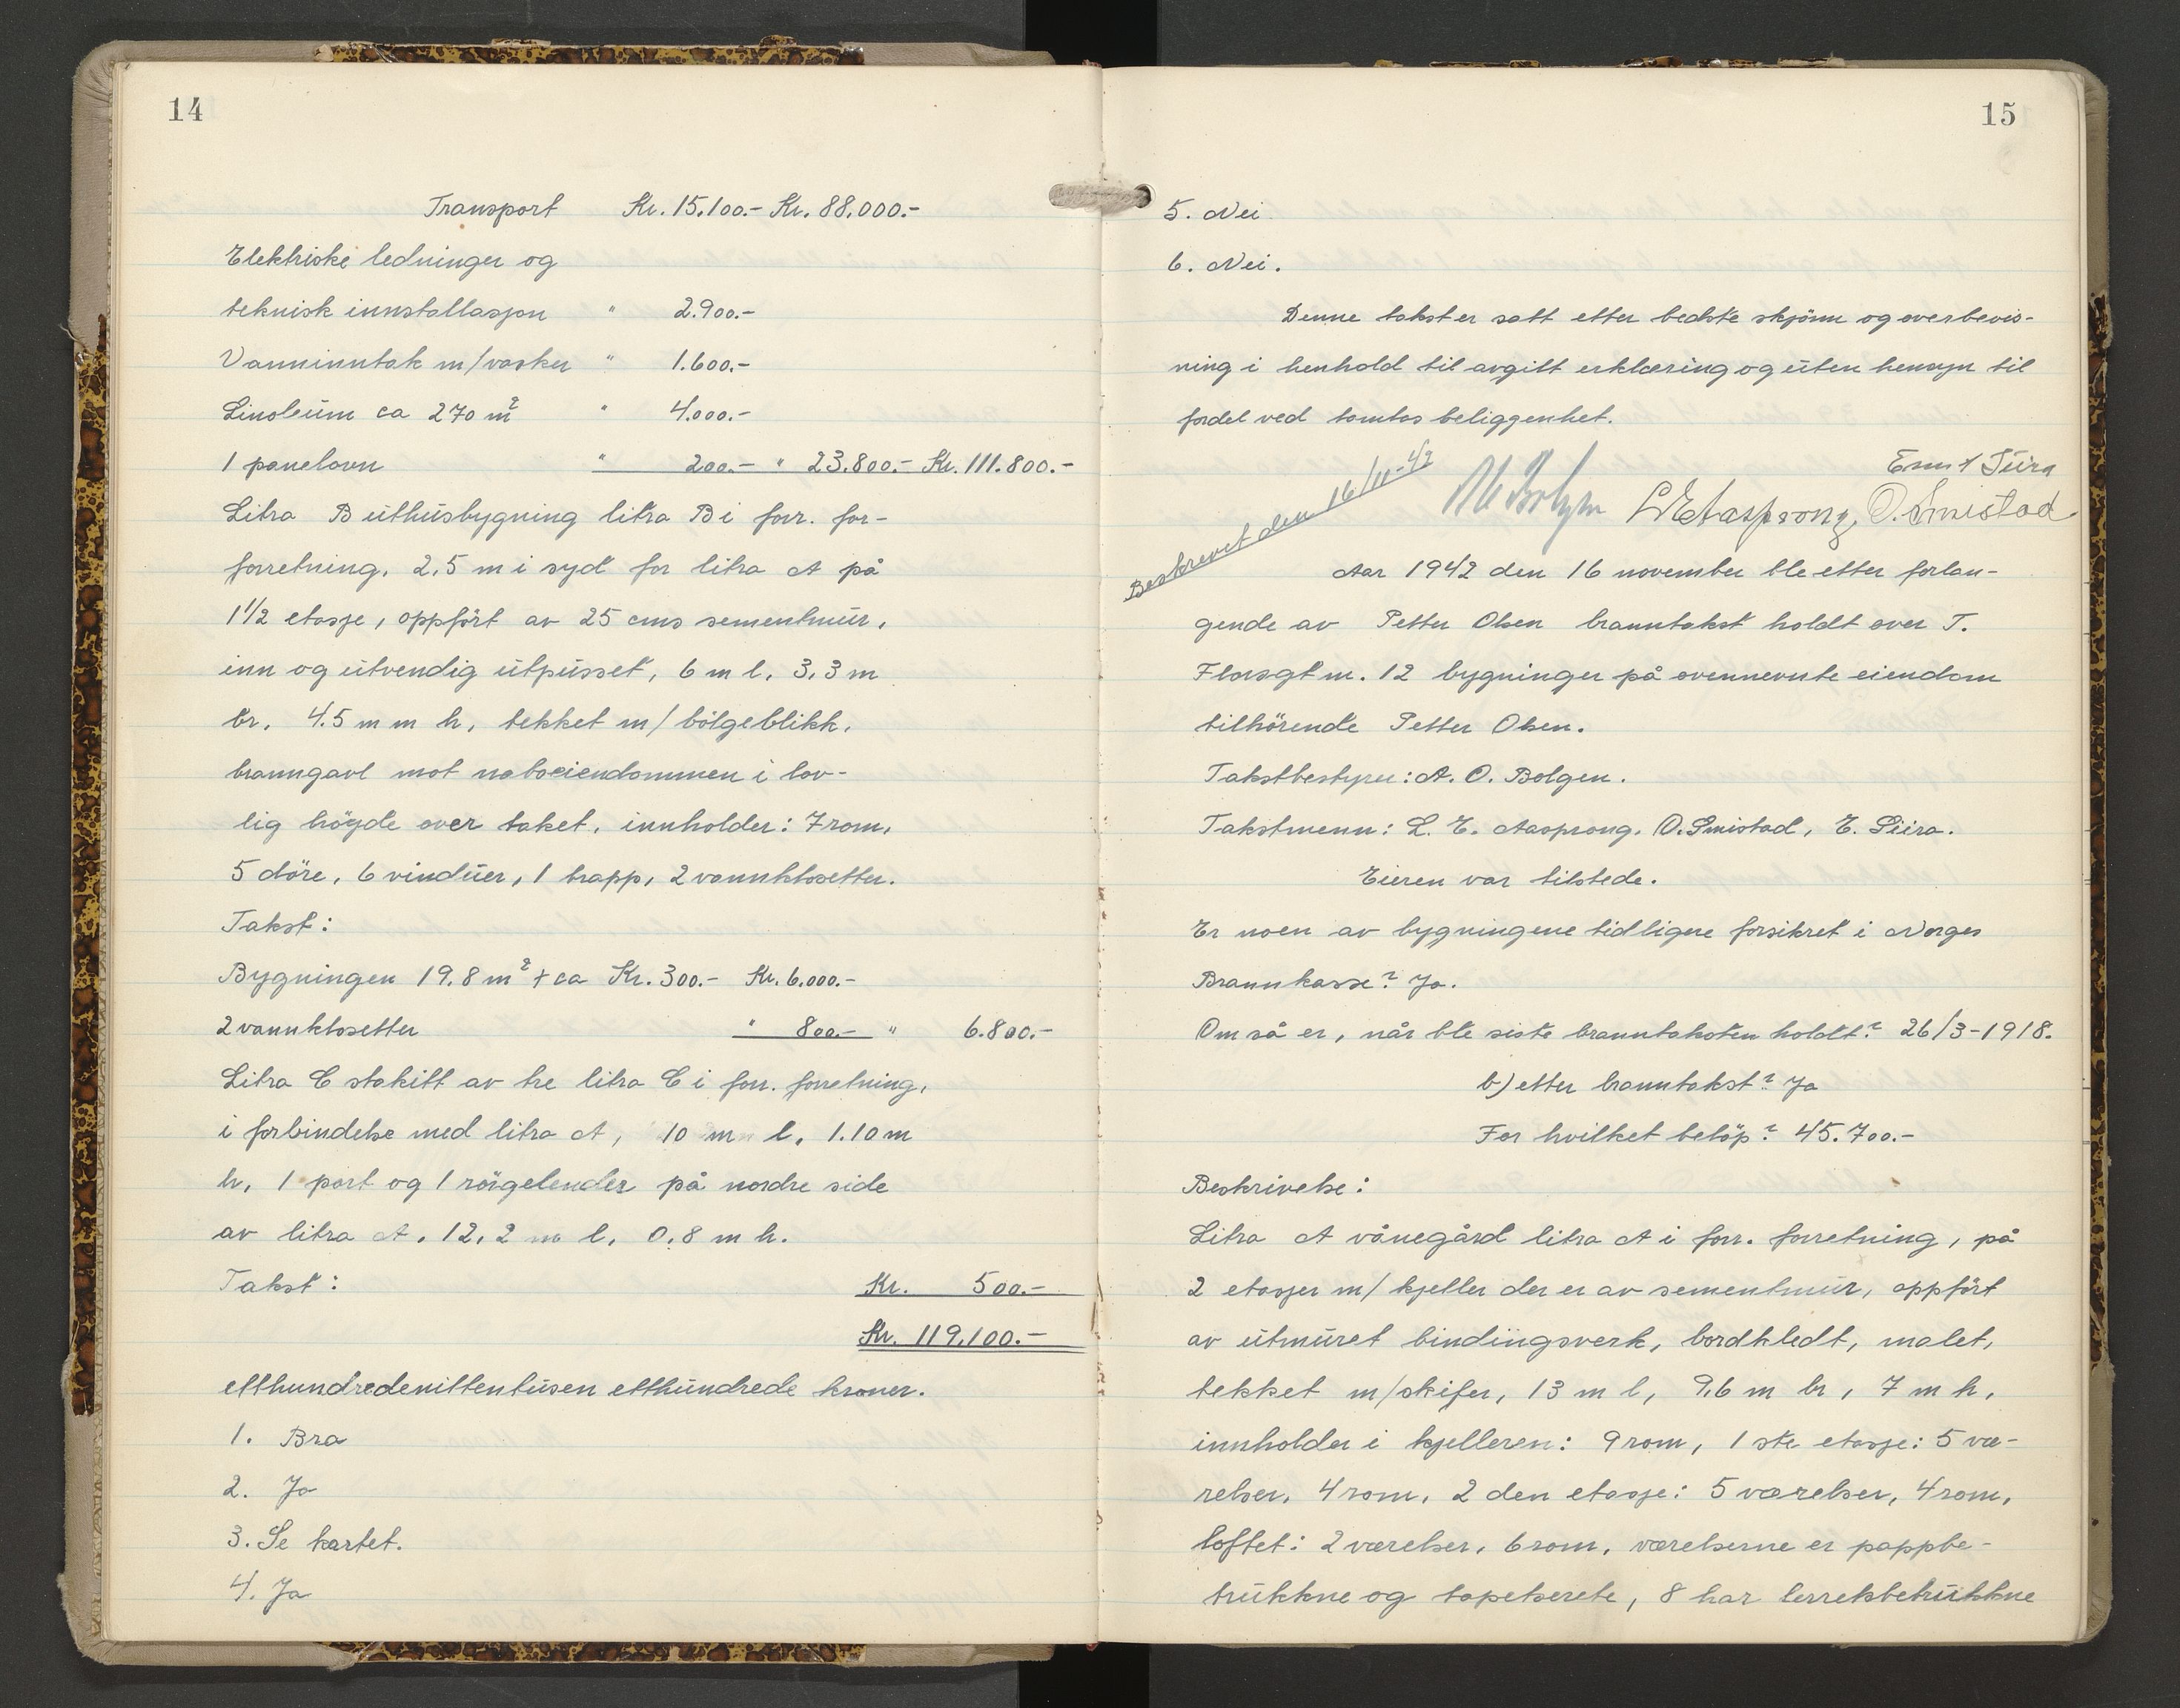 14
Transport Kr. 15.100.- Kr. 88.000.-
Elektriske ledninger og
teknisk innstallasjon " 2.900.-
Vanninntak m/vasker " 1.600.-
Linoleum ca 270 m² " 4.000.-
1 panelovn " 200.- " 23.800.- Kr. 111.800.-
Litra B uthusbygning litra B i forr. for-
forretning. 2,5 m i syd for litra A på
1 1/2 etasje, oppført av 25 cms sementmur,
inn og utvendig utpusset, 6 m l. 3,3 m
br. 4.5 m m h, tekket m/ bölgeblikk,
branngavl mot naboeiendommen i lov-
lig höyde over taket, innholder: 7 rom,
5 döre, 6 vinduer, 1 trapp, 2 vannklosetter.
Takst:
Bygningen 19.8 m² + ca Kr. 300.- Kr. 6.000.-
2 vannklosetter " 800.- " 6.800.-
Litra C stakitt av tre litra C i forr. forretning,
i forbindelse med litra A, 10 m l, 1.10 m
h, 1 port og 1 rörgelender på nordre side
av litra A. 12,2 m l, 0,8 m h.
Takst: Kr. 500.-
Kr. 119.100.-
etthundredenittentusen etthundrede kroner.
1. Bra
2. Ja
3. Se kartet.
4. Ja
15
5. Nei
6. Nei.
Denne takst er satt etter bedste skjönn og overbevis-
ning i henhold til avgitt erklæring og uten hensyn til
fordel ved tomtas beliggenhet.
Beskrevet den 16/11-42
L E Aasprong, O. Smistad
Aar 1942 den 16 november ble etter forlan-
gende av Petter Olsen branntakst holdt over T.
Florsgt nr. 12 bygninger på ovennevnte eiendom
tilhörende Petter Olsen.
Takstbestyrer: A. O. Bolgen.
Takstmenn: L. E. Aasprong. O. Smistad, E. Siira.
Eieren var tilstede.
Er noen av bygningene tidligere forsikret i Norges
Brannkasse? Ja.
Om så er, når ble siste branntaksten holdt? 26/3-1918.
b) etter branntakst? Ja
For hvilket belöp? 45.700.-
Beskrivelse:
Litra A vånegård litra A i forr. forretning, på
2 etasjer m/ kjeller der er av sementmur, oppfört
av utmuret bindingsverk, bordkledt, malet,
tekket m/skifer, 13 m l, 9,6 m br, 7 m h,
innholder i kjelleren: 9 rom, 1 ste etasje: 5 væ-
relser, 4 rom, 2 den etasje: 5 værelser, 4 rom,
loftet: 2 værelser, 6 rom, værelserne er pappbe-
trukkne og tapetserete, 8 har lerretsbetrukkne